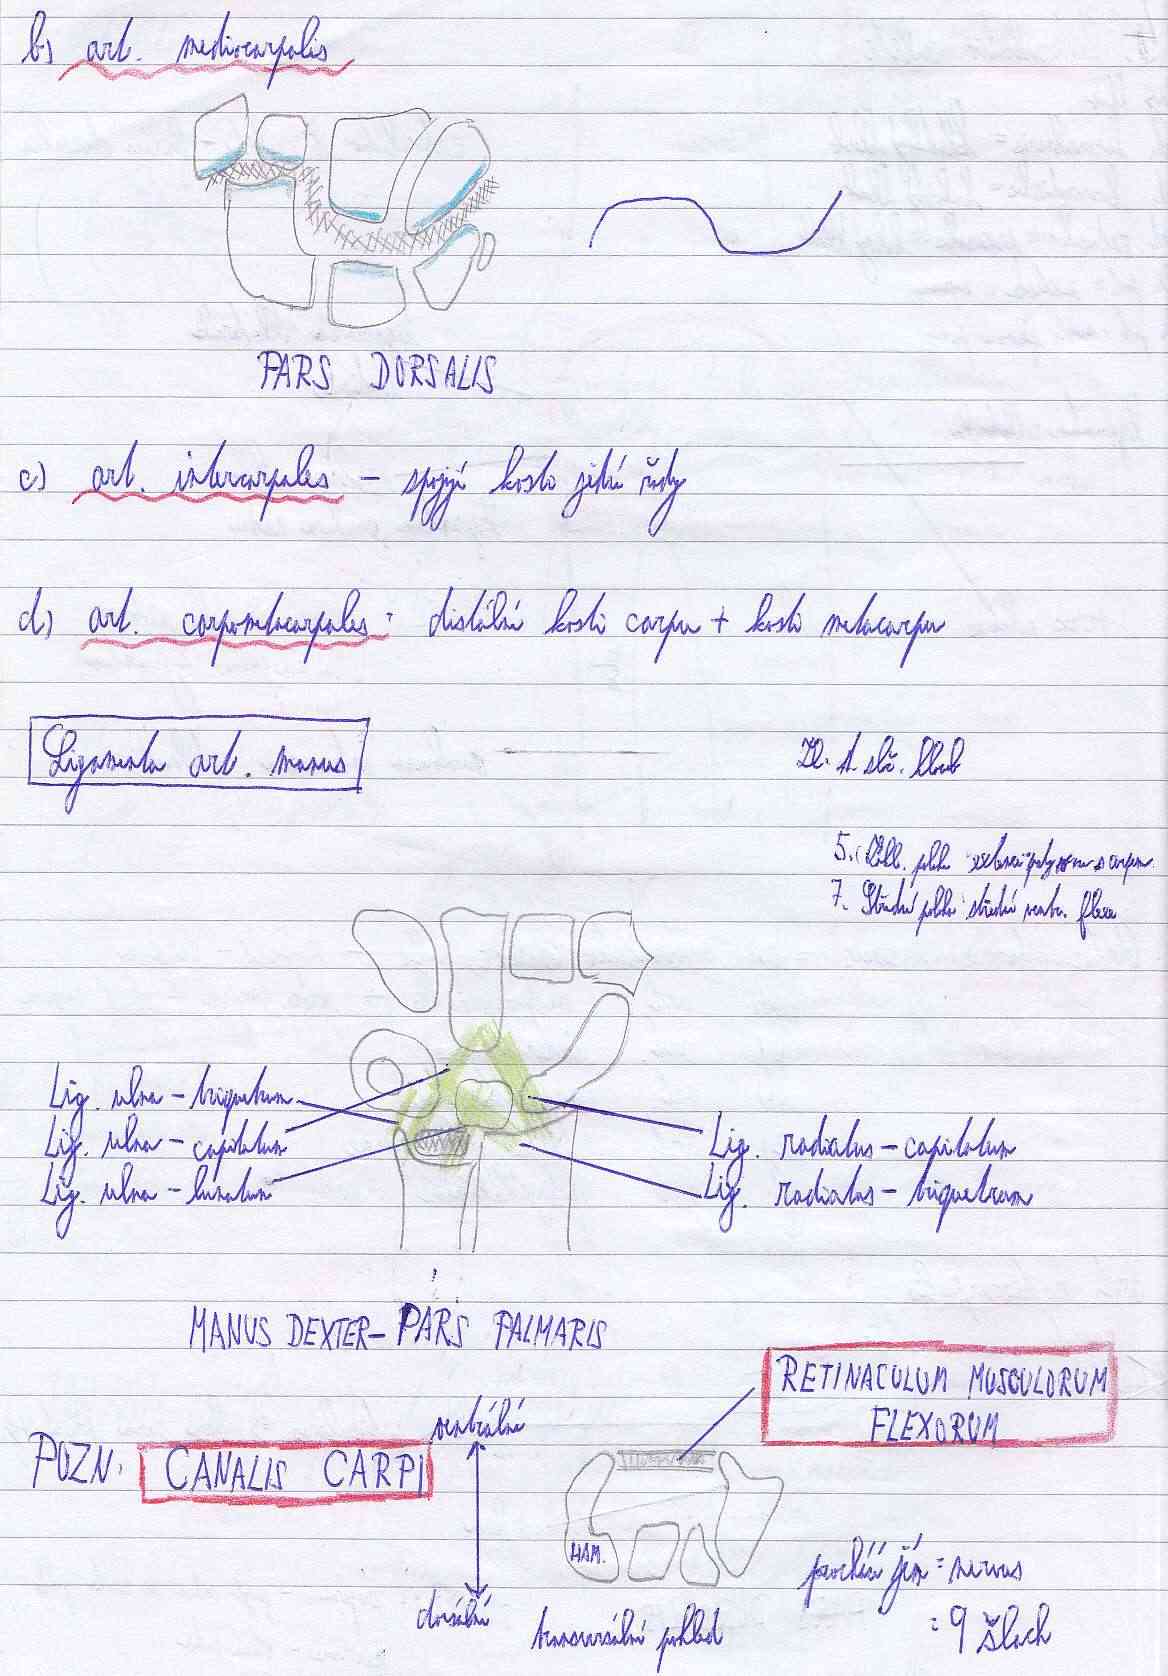 b) art. mediocarpalis
PARS DORSALIS
c) art. intercarpales - spojují kosti jedné řady
d) art. carpometacarpales: distální kosti carpu + kosti metacarpu
Ligamenta art. manus
A slž. kloub
5. Zákl. poloha
7. Střední poloha: střední flexe
Lig. ulna-triquetrum
Lig. ulna-capitatum
Lig. ulna-lunatum
Lig. radiatus-capitatum
Lig. radiatus-triquetrum
MANUS DEXTER-PARS PALMARIS
RETINACULUM MUSCULORUM
FLEXORUM
POZN. CANALIS CARPI
ventrální
HAM.
dorzální
transversální pohled
prochází jím: nervus
: 9 šlach